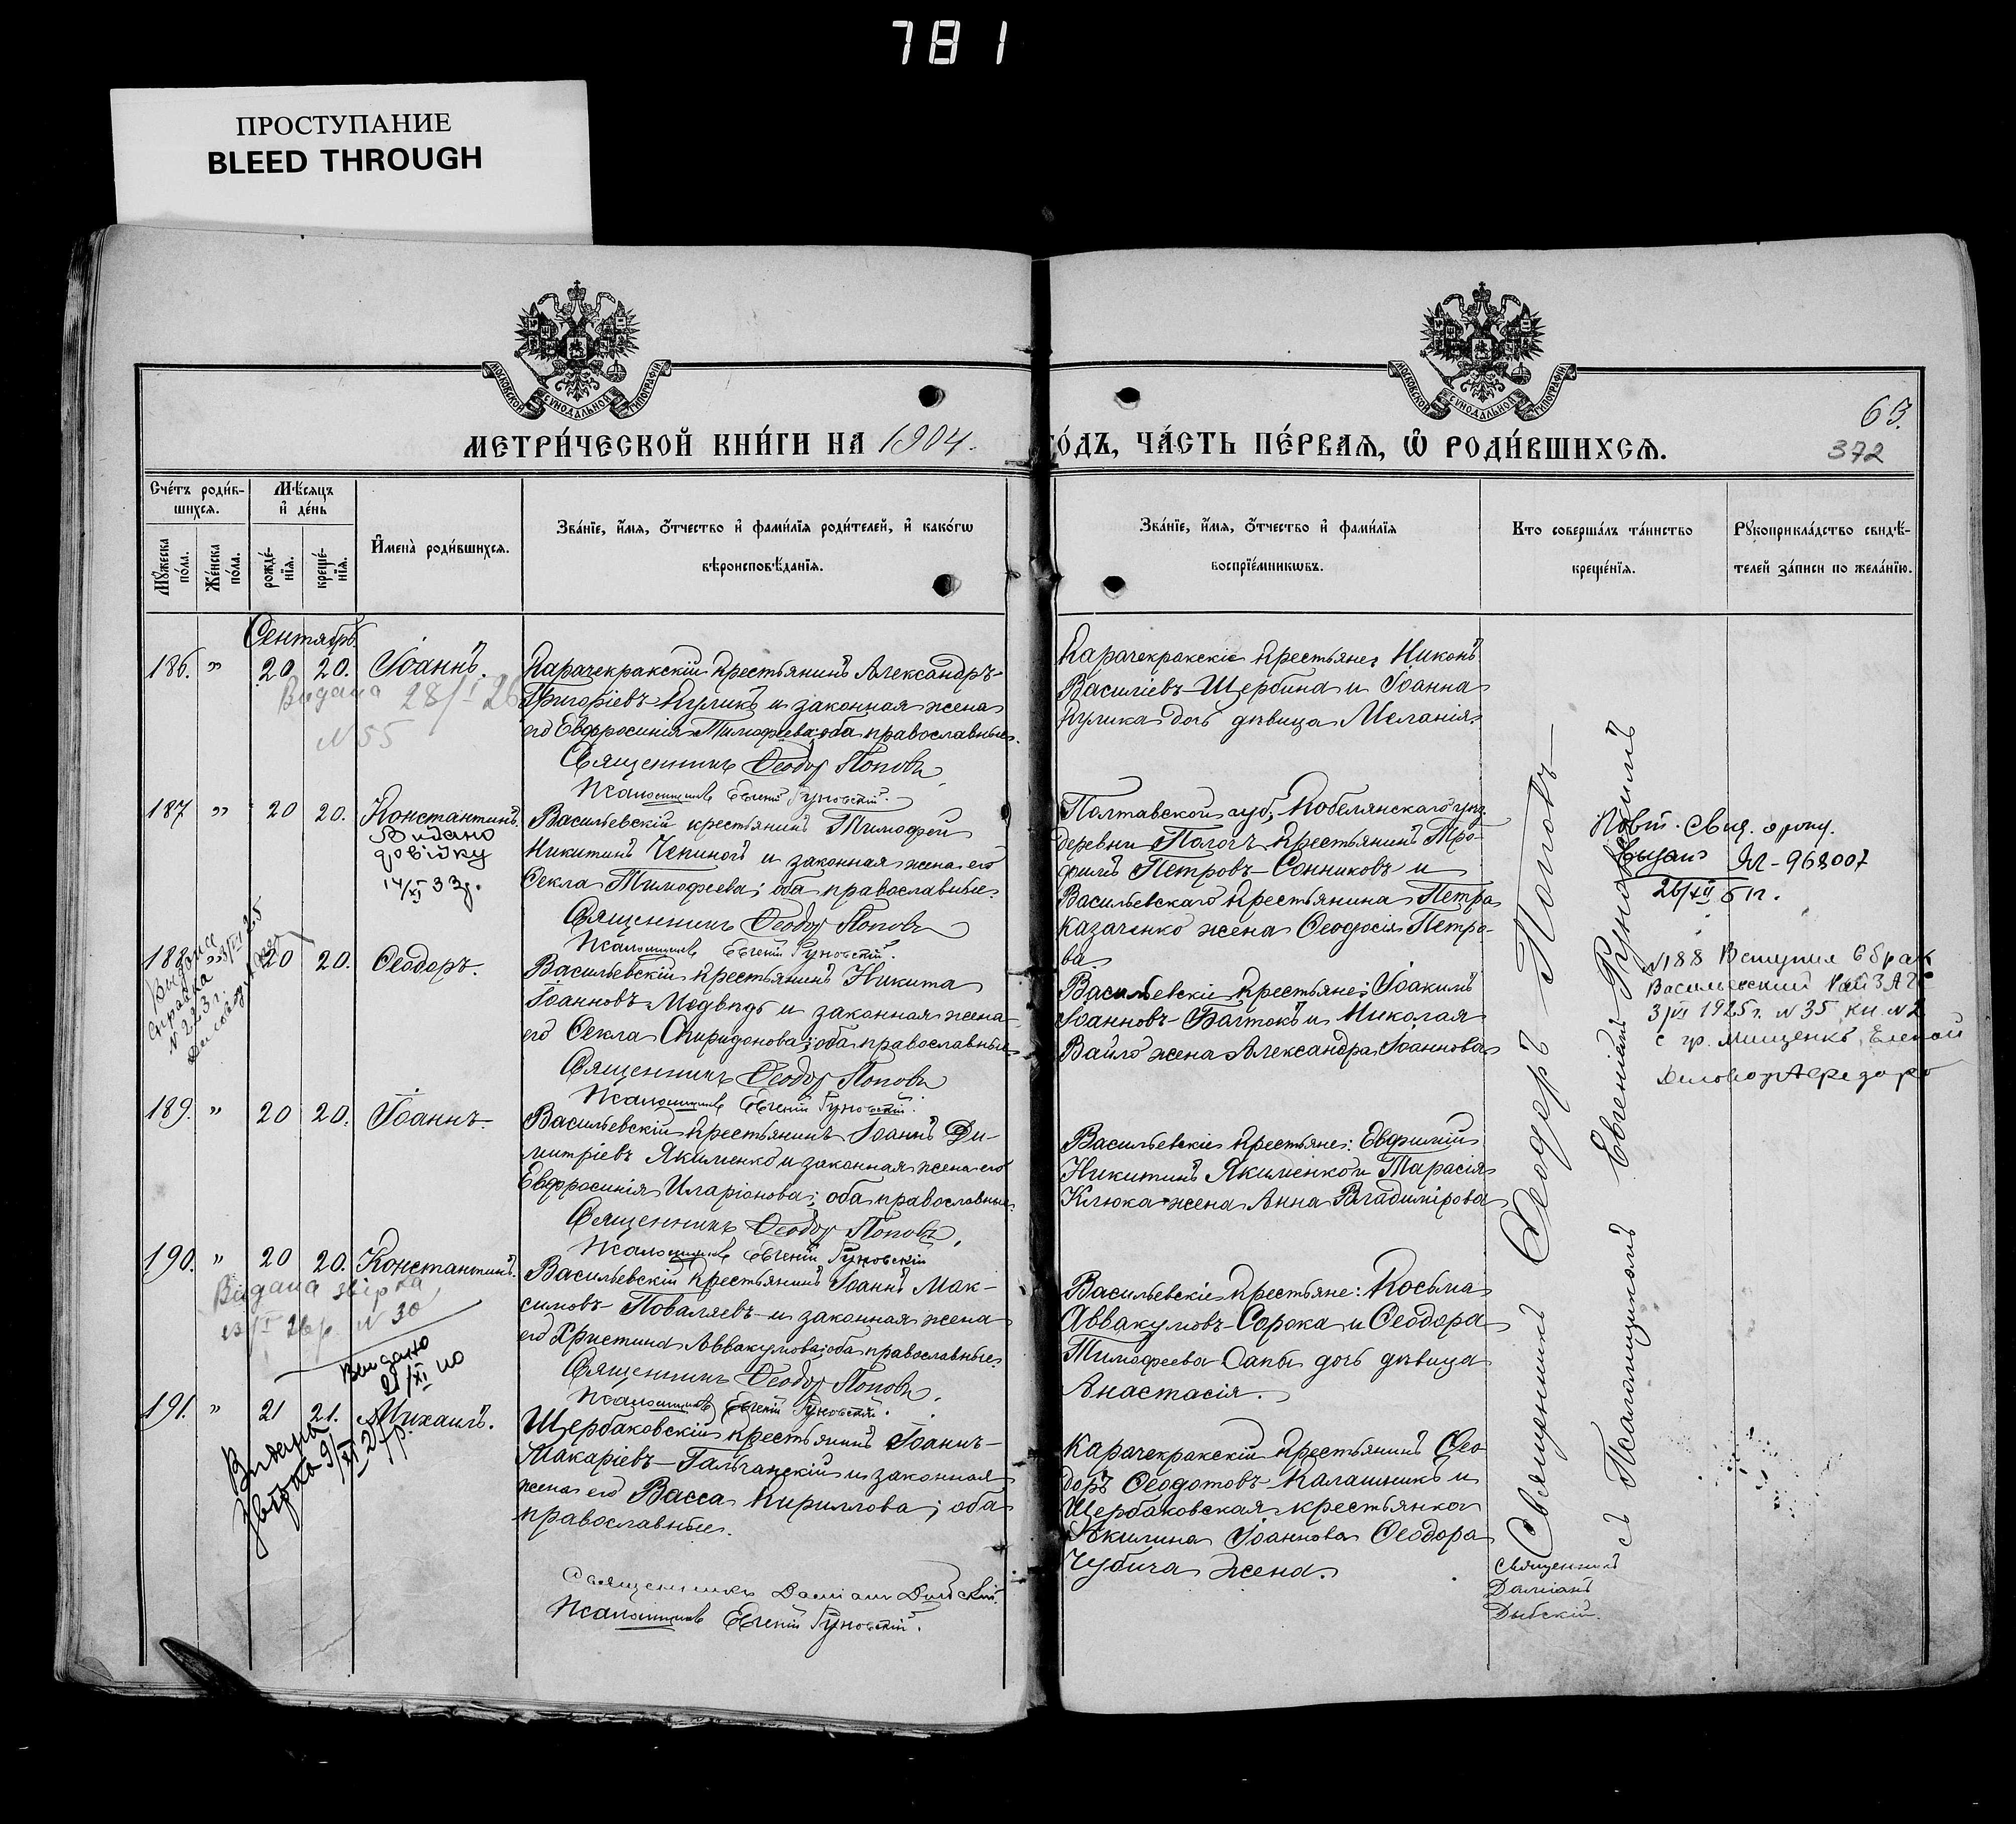 781
ПРОСТУПАНИЕ
BLEED THROUGH
МОСКОВСКОЙ СѴНОДАЛЬНОЙ ТИПОГРАФІИ
МОСКОВСКОЙ СѴНОДАЛЬНОЙ ТИПОГРАФІИ
МЕТРИ́ЧЕСКОЙ КНИ́ГИ НА 1904.
ГО́ДЪ, ЧА́СТЬ ПЕ́РВАѦ, Ѡ҆ РОДИ́ВШИХСѦ.
63.
372
Сче́тъ роди́в-
шихсѧ.
Мꙋ́жеска по́ла.
Же́нска по́ла.
Мѣ́сѧцъ
и҆ де́нь
рожде́-
нїѧ.
креще́-
нїѧ.
И҆мена̀ роди́вшихсѧ.
Зва́нїе, и҆́мѧ, ѻ҆́тчество и҆ фами́лїѧ роди́телей, и҆ како́гѡ
вѣроисповѣ́данїѧ.
Зва́нїе, и҆́мѧ, ѻ҆́тчество и҆ фами́лїѧ
воспрїе́мникѡвъ.
Кто соверша́лъ та́инство
креще́нїѧ.
Рꙋкоприкла́дство свидѣ́-
телей за́писи по жела́нїю.
Сентябрь.
186. " 20 20. Іоаннъ.
Видана 28/I 26
N 55
Карачекракскій крестьянинъ Александръ
Григоріевъ Куликъ и законная жена
его Евфросинія Тимофеева; оба православные.
Священникъ Ѳеодоръ Поповъ
Псаломщикъ Евгеній Руновскій.
Карачекракскіе крестьяне: Никонъ
Василіевъ Щербина и Іоанна
Кулика дочь дѣвица Меланія.
187 " 20 20. Константинъ.
Видано
довідку
14/XI 33 р.
Васильевскій крестьянинъ Тимофей
Никитинъ Чепиногъ и законная жена его
Ѳекла Тимофеева; оба православные.
Священникъ Ѳеодоръ Поповъ
Псаломщикъ Евгеній Руновскій.
Полтавской губ., Кобелянскаго уѣз.
деревни Пологъ крестьянинъ Тро-
фимъ Петровъ Санниковъ и
Васильевскаго крестьянина Петра
Казаченко жена Ѳеодосія Петро-
ва.
Повт. свид. о рожд.
выдано
968007
26/XII 51г.
188. " 20 20. Ѳеодоръ.
справка
N 223
Васильевскій крестьянинъ Никита
Іоанновъ Медвѣдь и законная жена
его Ѳекла Спиридонова; оба православные
Священникъ Ѳеодоръ Поповъ
Псаломщикъ Евгеній Руновскій.
Васильевскіе крестьяне: Іоакимъ
Іоанновъ Балтокъ и Николая
Вайло жена Александра Іоаннова
N188 Вступил в брак
Василевский РайЗАГС
3/VI 1925г. N 35 кн. N 2
с гр. Мищенко Еленой
189. " 20 20. Іоаннъ.
Васильевскій крестьянинъ Іоаннъ Ди-
митріевъ Якименко и законная жена его
Евфросинія Иларіонова; оба православные
Священникъ Ѳеодоръ Поповъ.
Псаломщикъ Евгеній Руновскій
Васильевскіе крестьяне: Евфимій
Никитинъ Якименко и Тарасія
Клюка жена Анна Владимірова
190. " 20 20. Константинъ.
Видана звірка
N 30
Видано
21/XI 40
Васильевскій крестьянинъ Іоаннъ Мак-
симовъ Поваляевъ и законная жена
его Христина Аввакумова; оба православные.
Священникъ Ѳеодоръ Поповъ.
Псаломщикъ Евгеній Руновскій.
Васильевскіе крестьяне: Косьма
Аввакумовъ Сорока и Ѳеодора
Тимофеева Сапы дочь дѣвица
Анастасія.
191. " 21 21. Михаилъ.
Видана
звірка 9/XI 27 р.
Щербаковскій крестьянинъ Іоаннъ
Макаріевъ Гальчанскій и законная
жена его Васса Кириллова; оба
православные.
Священникъ Даміанъ Дыбскій.
Псаломщикъ Евгеній Руновскій.
Карачекракскій крестьянинъ Ѳео-
доръ Ѳеодотовъ Калашникъ и
Щербаковская крестьянка
Акилина Іоаннова Ѳеодора
Чубича жена.
Священникъ Ѳеодоръ Поповъ
съ Псаломщикомъ Евгеніемъ Руновскимъ
Священникъ
Даміанъ
Дыбскій.